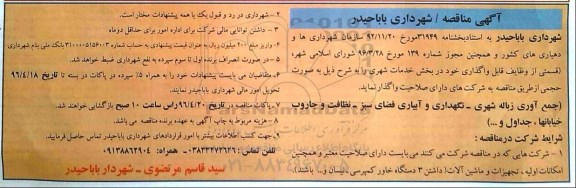 آگهی مناقصه / شهرداری باباحیدر
شهرداری باباحیدر به استنادبخشنامه ۳۱۹۴۹مورخ ۹۲/۱۱/۲۰ سازمان شهرداری ها و
دهیاری های کشور و همچنین مجوز شماره ۱۳۹ مورخ ۹۶/۳/۲۸ شورای اسلامی شهر
(قسمتی از وظایف قابل واگذاری خود در بخش خدمات شهری را) به شرح ذیل به صورت
حجمی ازطریق مناقصه به شرکت های دارای صلاحیت واگذار نماید.
(جمع آوری زباله شهری - نگهداری و آبیاری فضای سبز - نظافت و جاروب
خیابانها، جداول و ...)
شرایط شرکت درمناقصه :
۱ - شرکت هایی که در مناقصه شرکت می کنند می بایست دارای صلاحیت معتبر و همچنین
امکانات اولیه ، تجهیزات و ماشین آلات( داشتن ۳ دستگاه خاور کمپرسی ، نیسان و... باشند)
۲ - شهرداری در رد و قبول یک یا همه پیشنهادات مختار است.
۳ - داشتن توانایی مالی شرکت برای اداره امور برای حداقل دوماه
۴ - واریز مبلغ ۲۰۰ میلیون ریال به عنوان قیمت پیشنهادی به حساب شماره ۳۱۰۰۰۰۵۱۵۶۰۰۳ بانک ملی بنام شهرداری
۵ - در صورت انصراف برنده اول تا سوم سپرده به نفع شهرداری ضبط خواهد شد.
۶ - متقاضیان می بایست پیشنهادات خود را به همراه ۵٪ سپرده در پاکات در بسته تا تاریخ ۹۶/۴/۱۸
تحویل امور مالی شهرداری باباحیدر نمایند.
۷ - پاکات مناقصه در تاریخ ۹۶/۴/۲۰راس ساعت ۱۰ صبح بازگشایی خواهند شد.
۸ - هزینه مربوط به چاپ آگهی به عهده برنده مناقصه می باشد.
۹- جهت کسب اطلاعات بیشتر با امور قراردادهای شهرداری باباحیدر تماس حاصل فرمایید.
تلفن تماس: ۰۳۸۳۳۳۷۲۶۲۶ همراه: ۰۹۱۳۸۸۶۲۹۰۴
سید قاسم مرتضوی - شهردار باباحیدر